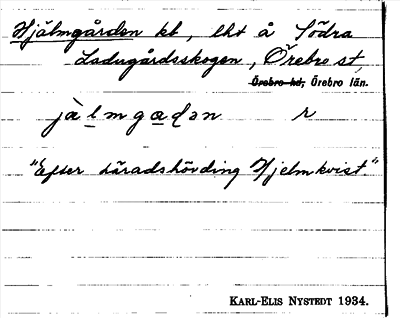 Hjälmgården kb, lht å Södra
Ladugårdsskogen, Örebro st,
Örebro hd, Örebro län.
jàlmgaḍən r
"Efter häradshövding Hjelmkvist."
KARL-ELIS NYSTEDT 1934.